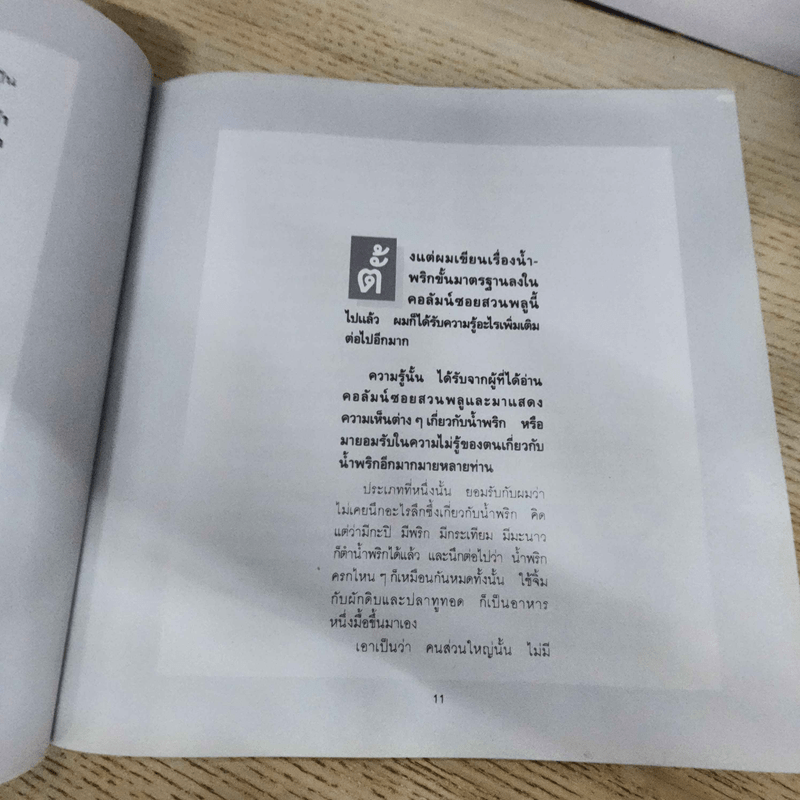 ตั้งแต่ผมเขียนเรื่องน้ำ-
พริกขั้นมาตรฐานลงใน
คอลัมน์ซอยสวนพลูนี้
ไปแล้ว ผมก็ได้รับความรู้อะไรเพิ่มเติม
ต่อไปอีกมาก
ความรู้นั้น ได้รับจากผู้ที่ได้อ่าน
คอลัมน์ซอยสวนพลูและมาแสดง
ความเห็นต่าง ๆ เกี่ยวกับน้ำพริก หรือ
มายอมรับในความไม่รู้ของตนเกี่ยวกับ
น้ำพริกอีกมากมายหลายท่าน
ประเภทที่หนึ่งนั้น ยอมรับกับผมว่า
ไม่เคยนึกอะไรลึกซึ้งเกี่ยวกับน้ำพริก คิด
แต่ว่ามีกะปิ มีพริก มีกระเทียม มีมะนาว
ก็ตำน้ำพริกได้แล้ว และนึกต่อไปว่า น้ำพริก
ครกไหน ๆ ก็เหมือนกันหมดทั้งนั้น ใช้จิ้ม
กับผักดิบและปลาทูทอด ก็เป็นอาหาร
หนึ่งมื้อขึ้นมาเอง
เอาเป็นว่า คนส่วนใหญ่นั้น ไม่มี
11